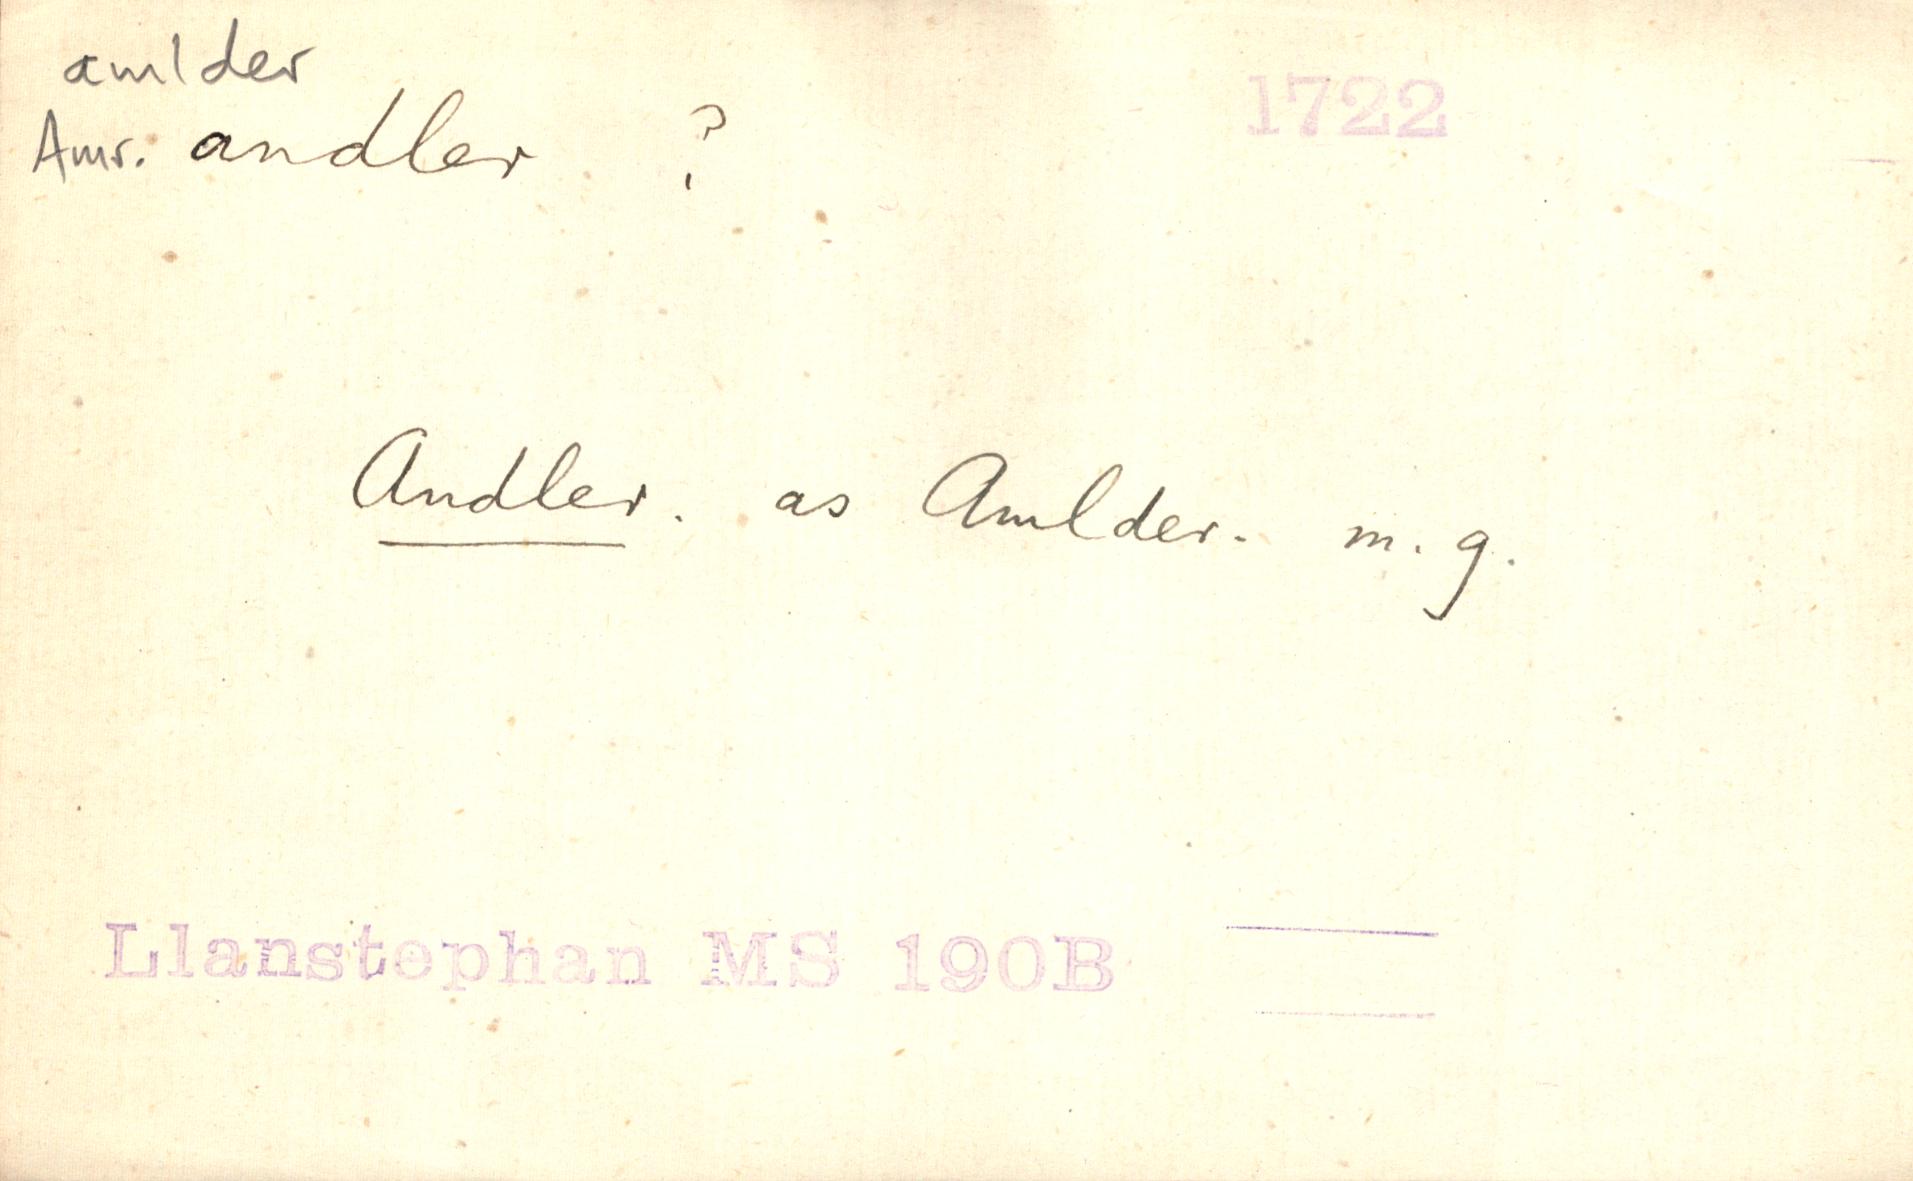 amlder
Amr. andler ?
1722
Andler. as Amlder. m. g.
Llanstephan MS 190B